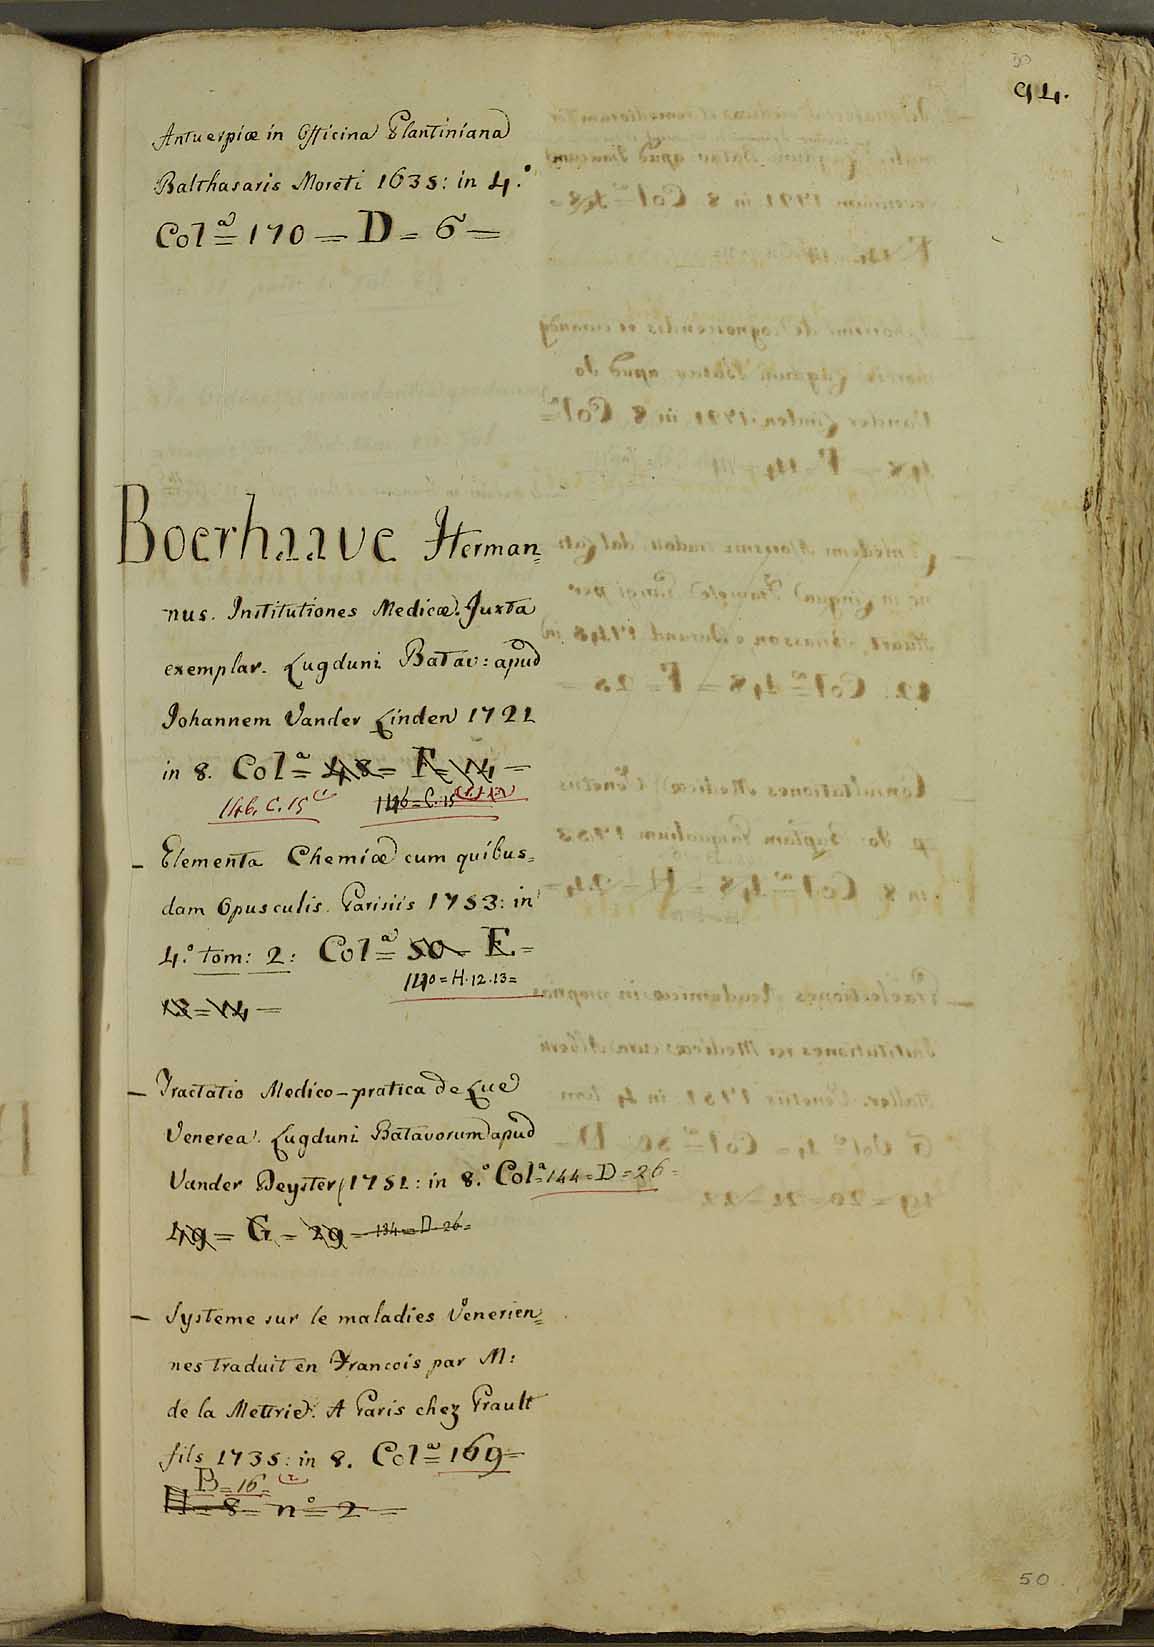 94.
Antuerpiæ in Officina Plantiniana
Balthasaris Moreti 1635: in 4.°
Col.ª = 170 = D = 6 =
Boerhaave Herman=
nus. Institutiones Medicæ. Juxta
exemplar. Lugduni Batav: apud
Johannem Vander Linden 1721
in 8. Col.ª = 48 = F = 14 =
146. C. 15 146 = C. 15
– Elementa Chemiæ cum quibus=
dam Opusculis. Parisiis 1753: in
4.° tom: 2: Col.ª = 50 = E =
140 = H. 12. 13 =
13 = 14 =
– Tractatio Medico-pratica de Lue
Venerea. Lugduni Batavorum apud
Vander Deyster 1751: in 8.° Col.ª = 144 = D = 26 =
49 = G = 29 = 134 = D. 26 =
– Systeme sur le maladies Venerien=
nes traduit en Francois par M:
de la Mettrie. A Paris chez Prault
fils 1735: in 8. Col.ª = 169 =
B = 16 = (2
H = 8 = n.° = 2 =
50